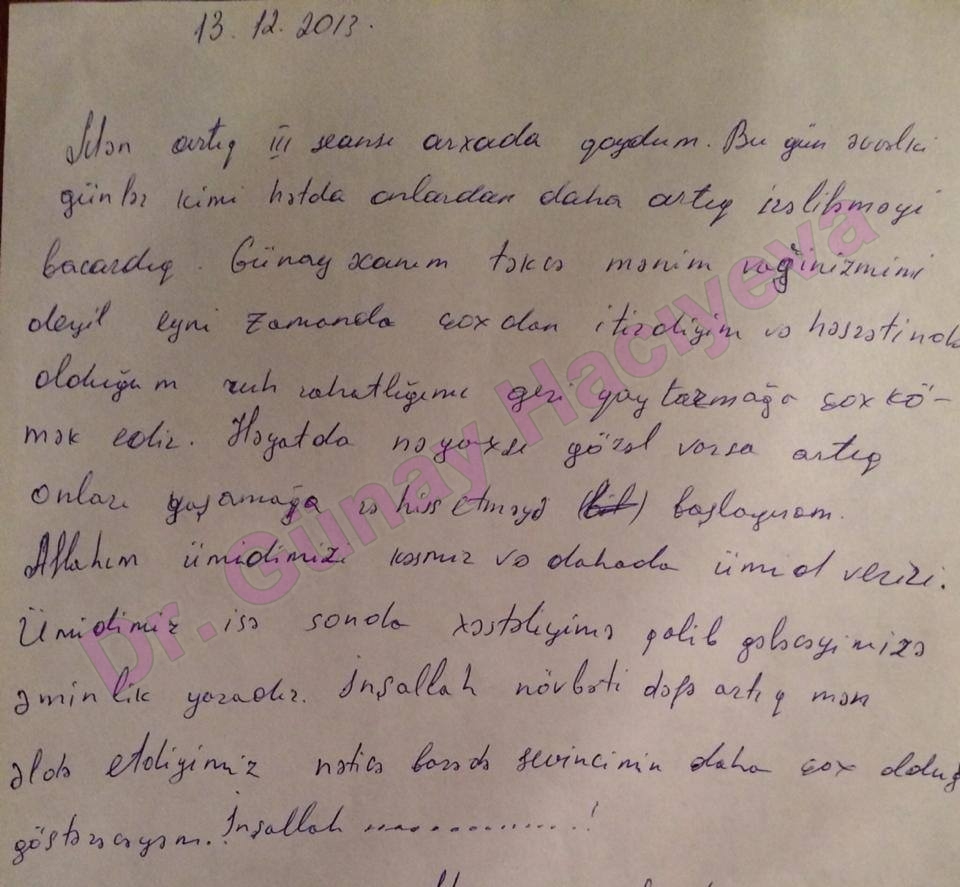 13. 12. 2013.
Mən artıq III seansı arxada qoydum. Bu gün əvvəlki
günlər kimi hətda onlardan daha artıq irəliləməyi
bacardıq. Günay xanım təkcə mənim vaginizmimi
deyil eyni zamanda çoxdan itirdiyim və həsrətində
olduğum ruh rahatlığımı geri qaytarmağa çox kö-
mək edir. Həyatda nə yaxşı gözəl varsa artıq
onları yaşamağa və hiss etməyə başlayıram.
Allahım ümidimizi kəsmir və dahada ümid verir.
Ümidimiz isə sonda xəstəliyimə qalib gələcəyimizə
əminlik yaradır. İnşallah növbəti dəfə artıq mən
əldə etdiyimiz nəticə barədə sevincimin daha çox olduğ
göstərəcəyəm. İnşallah ................!
Dr. Günay Hacıyeva